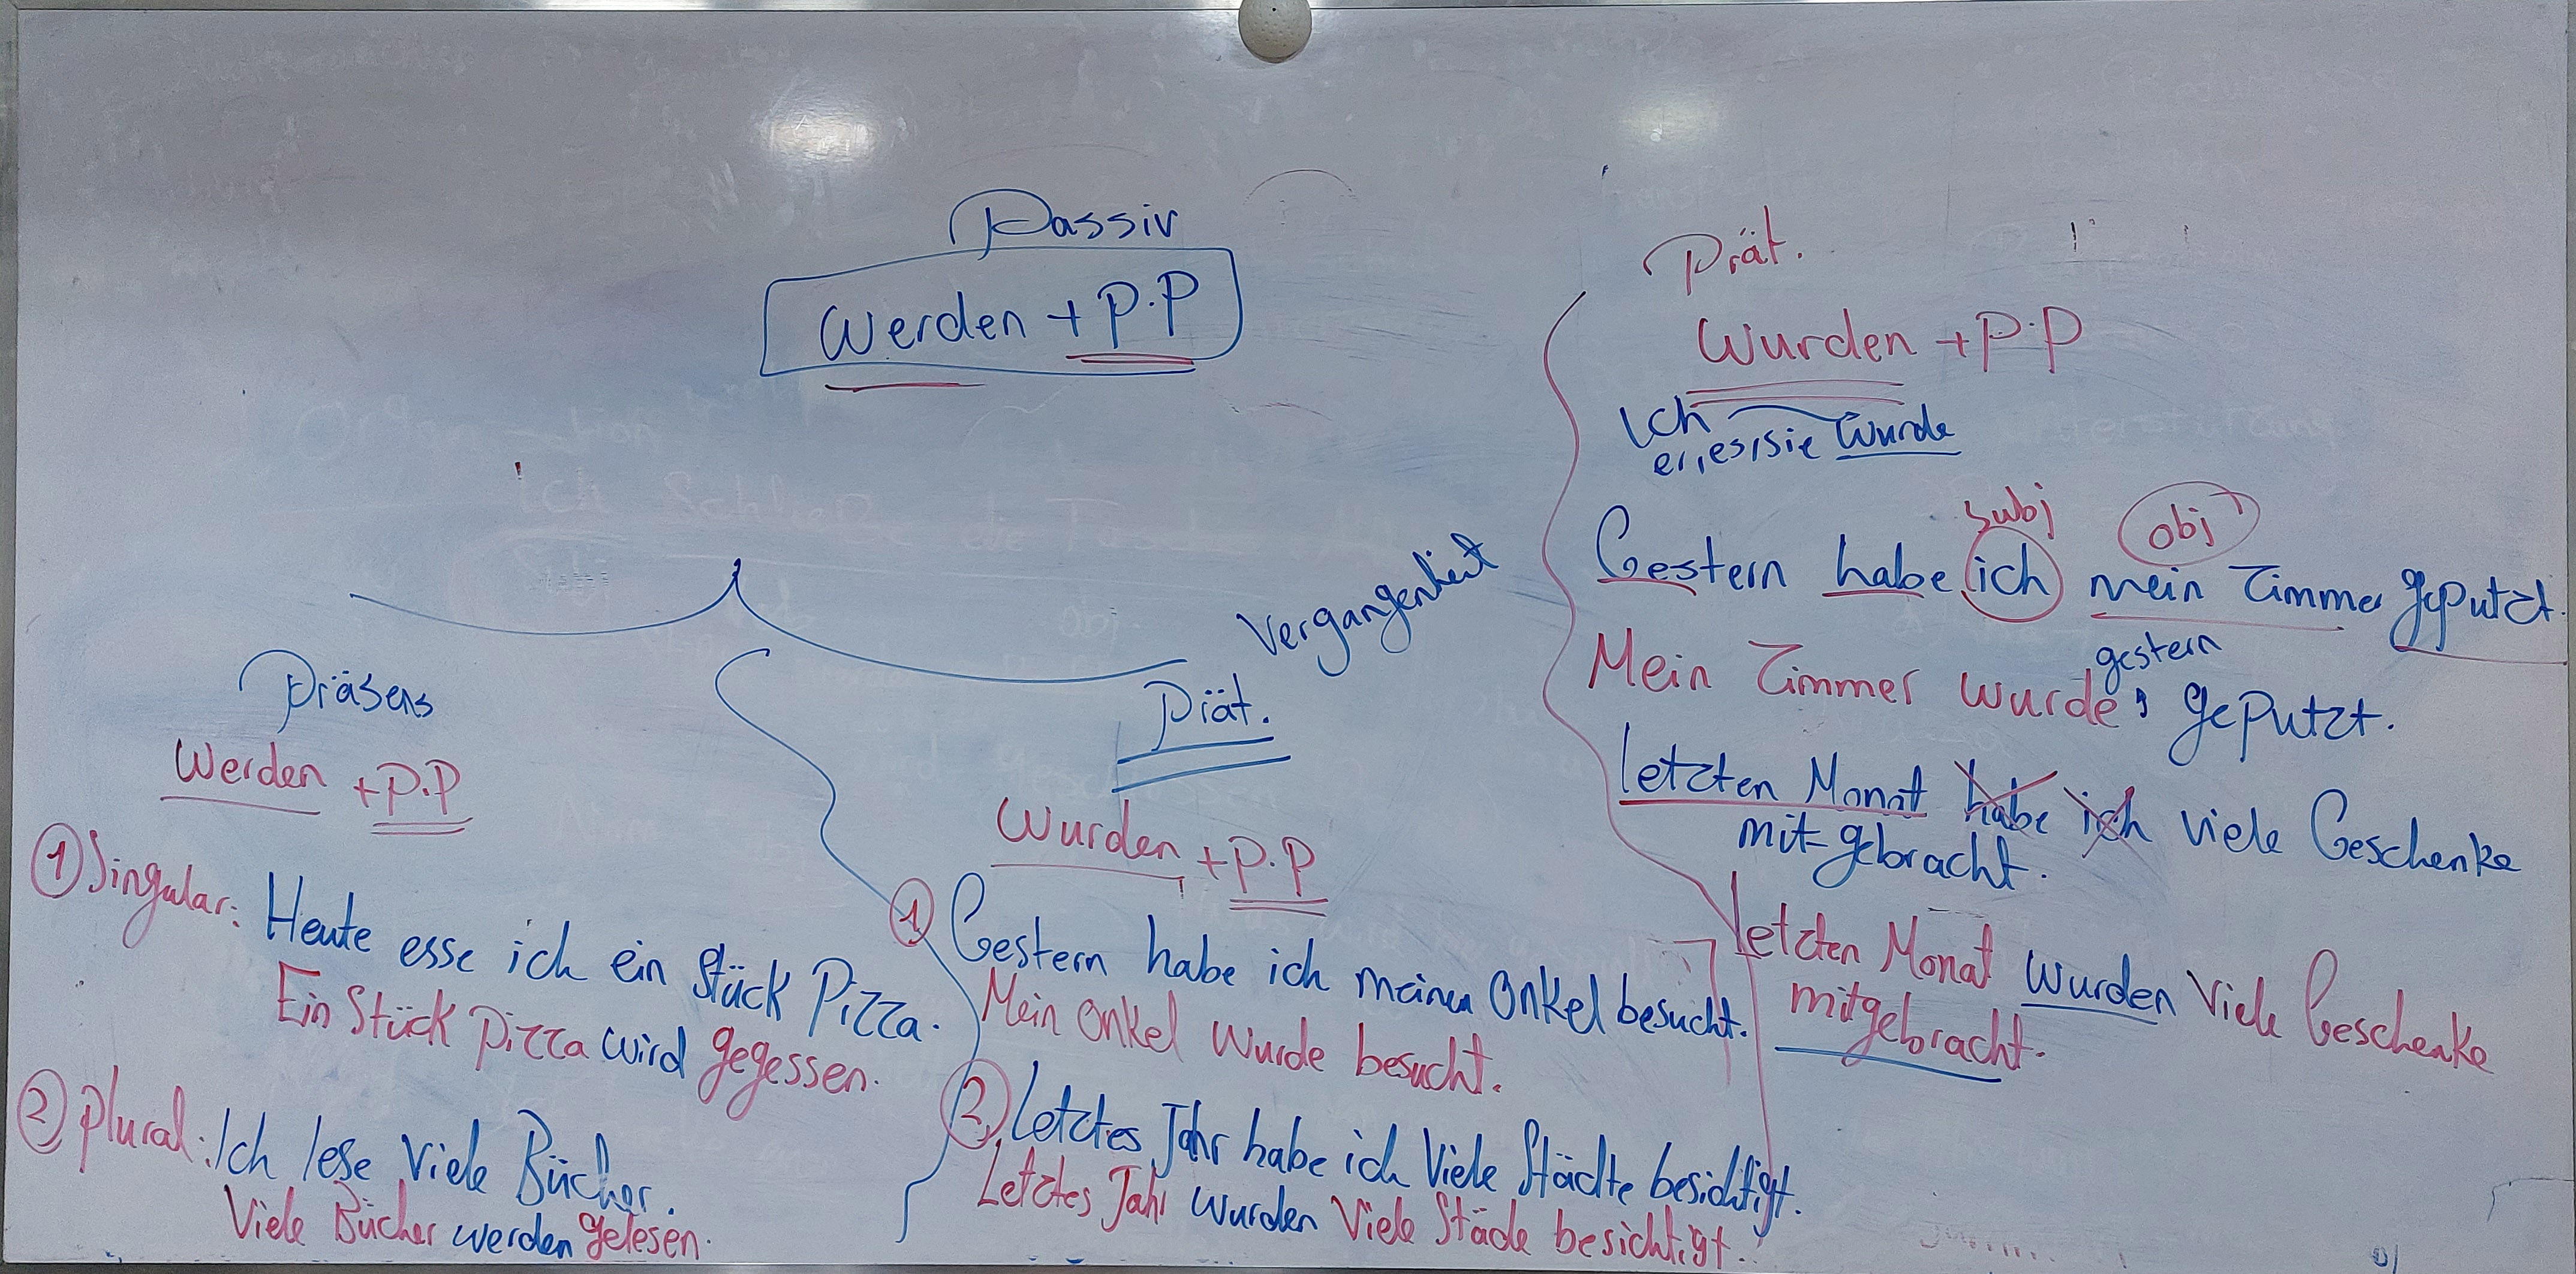 Passiv
Werden + P.P
Präsens
Werden + P.P
① Singular: Heute esse ich ein Stück Pizza.
Ein Stück Pizza wird gegessen.
② Plural: Ich lese viele Bücher.
Viele Bücher werden gelesen.
Vergangenheit
Prät.
Wurden + P.P
① Gestern habe ich meinen Onkel besucht.
Mein Onkel wurde besucht.
② Letztes Jahr habe ich viele Städte besichtigt.
Letztes Jahr wurden viele Städe besichtigt.
Prät.
Wurden + P.P
Ich
er,es,sie wurde
subj obj
Gestern habe ich mein Zimmer geputzt.
gestern
Mein Zimmer wurde, geputzt.
letzten Monat habe ich viele Geschenke
mitgebracht.
letzten Monat wurden viele Geschenke
mitgebracht.